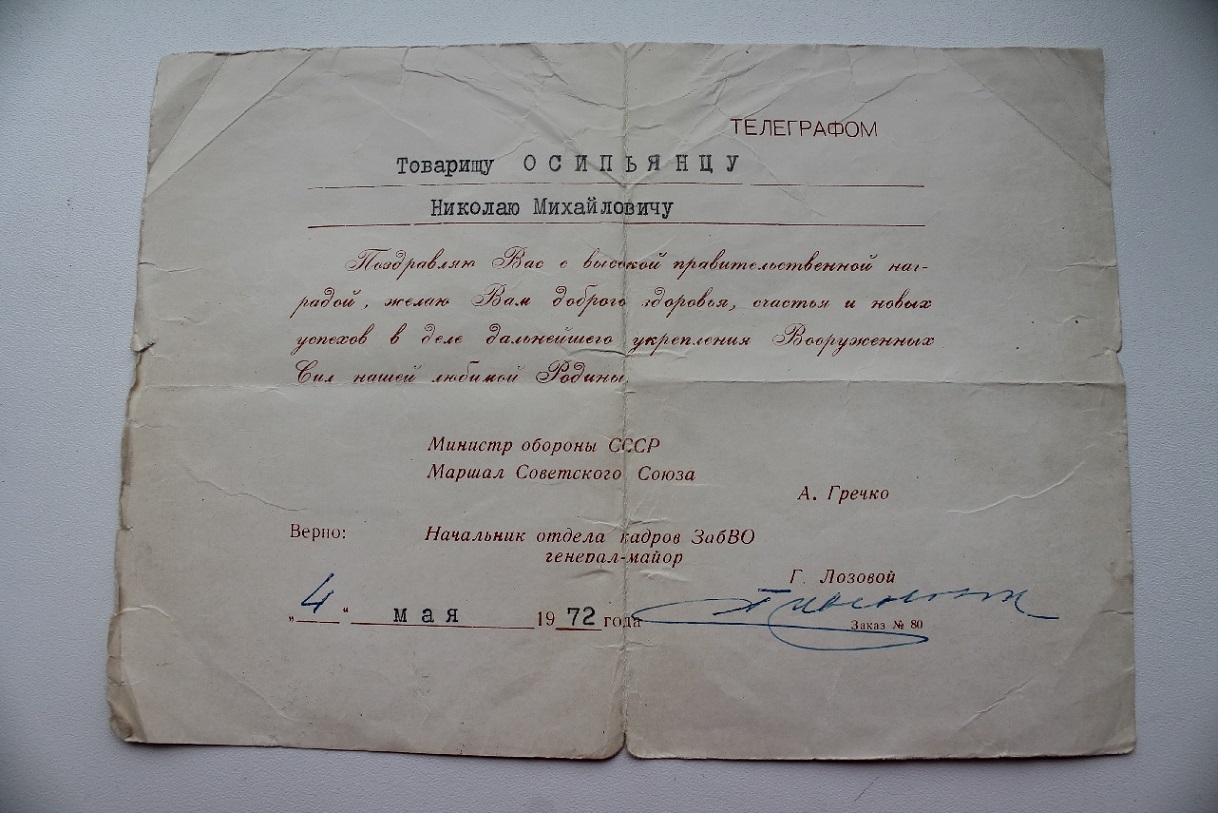 ТЕЛЕГРАФОМ
Товарищу ОСИПЬЯНЦУ
Николаю Михайловичу
Поздравляю Вас с высокой правительственной наг-
радой, желаю Вам доброго здоровья, счастья и новых
успехов в деле дальнейшего укрепления Вооруженных
Сил нашей любимой Родины.
Министр обороны СССР
Маршал Советского Союза
А. Гречко
Верно: Начальник отдела кадров ЗабВО
генерал-майор
Г. Лозовой
„4“ мая 1972 года
Заказ № 80